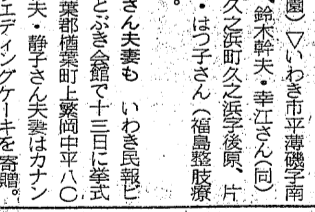 園）▽いわき市平薄磯字南
、鈴木幹夫・幸江さん（同）
久之浜町久之浜字後原、片
・はつ子さん（福島整肢療
。
さん夫妻も　いわき民報ビ
とぶき会館で十三日に挙式
葉郡楢葉町上繁岡中平八〇
夫・静子さん夫妻はカナン
エディングケーキを寄贈。